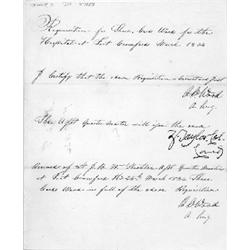 Requisition for Three Cords Wood for the
Hospital at Fort Crawford March 1834
I Certify that the above Requisition is correct and just
R. C. Wood
A. Surg
The Asst Quarter Master will issue the above
Z. Taylor Col.
Comd
Received of Lt. J. H. W. Asst Quarter Master
at Fort Crawford 25th March 1834 Three
Cords Wood in full of the above Requisition
R. C. Wood
A. Surg